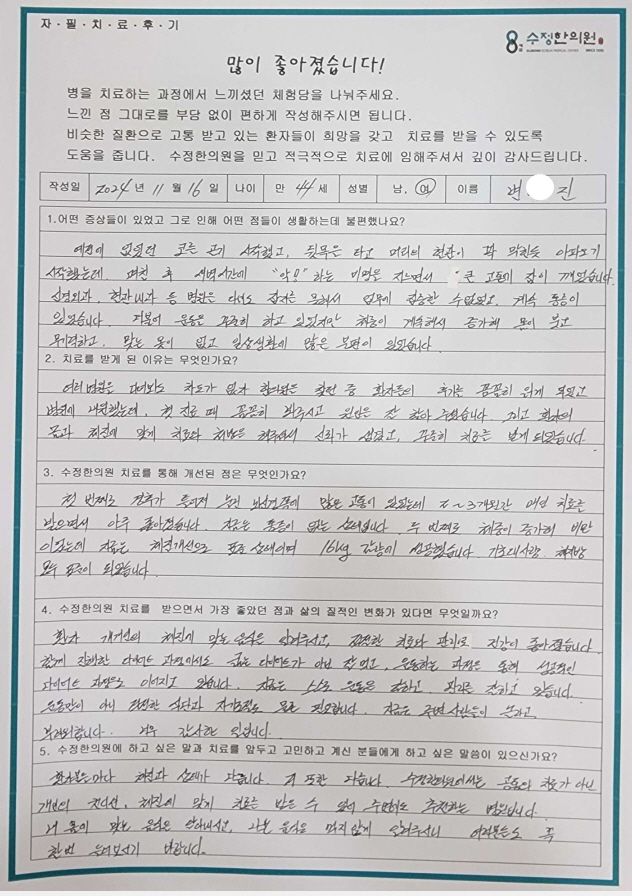 자·필·치·료·후·기
수정한의원
많이 좋아졌습니다!
병을 치료하는 과정에서 느끼셨던 체험담을 나눠주세요.
느낀 점 그대로를 부담 없이 편하게 작성해주시면 됩니다.
비슷한 질환으로 고통 받고 있는 환자들이 희망을 갖고 치료를 받을 수 있도록
도움을 줍니다. 수정한의원을 믿고 적극적으로 치료에 임해주셔서 깊이 감사드립니다.
작성일 2024년 11월 16일 나이 만 44세 성별 남, 여 이름 변 진
1.어떤 증상들이 있었고 그로 인해 어떤 점들이 생활하는데 불편했나요?
예전에 없었던 코를 골기 시작했고, 뒷목은 타고 머리의 혈관이 꽉 막힌듯 아파오기
시작했는데 며칠 후 새벽시간에 "악!!" 하는 비명을 지르면서 큰 고통에 잠이 깨었습니다.
신경외과, 혈관내과 등 병원은 다녀도 잠자는 못해서 업무에 집중할 수없었고, 계속 통증이
있었습니다. 더불어 운동은 꾸준히 하고 있었지만 체중이 계속해서 증가해 몸이 붓고
무기력하고, 맞는 옷이 없고 일상생활에 많은 불편이 있었습니다.
2. 치료를 받게 된 이유는 무엇인가요?
여러병원을 다녀봐도 차도가 없자 한의원을 찾던 중 환자들의 후기를 꼼꼼히 읽게 되었고
병원에 내원했는데, 첫 진료 때 꼼꼼히 봐주시고 원인을 잘 찾아 주셨습니다. 그리고 환자의
몸과 체질에 맞게 치료와 처방을 해주셔서 신뢰가 생겼고, 꾸준히 치료를 받게 되었습니다.
3. 수정한의원 치료를 통해 개선된 점은 무엇인가요?
첫 번째로 많은 고통이 있었는데 2~3개월간 매번 치료를
받으면서 아주 좋아졌습니다. 지금은 통증이 없는 상태입니다. 두 번째로 체중이 증가해 비만
이었는데 지금은 체질개선으로 표준 상태이며 16kg 감량에 성공했습니다. 기초대사량, 체지방
모두 표준이 되었습니다.
4. 수정한의원 치료를 받으면서 가장 좋았던 점과 삶의 질적인 변화가 있다면 무엇일까요?
환자 개개인의 체질에 맞는 음식을 알려주시고, 적절한 치료와 관리로 건강이 좋아졌습니다.
함께 진행한 다이어트 과정에서도 굶는 다이어트가 아닌 잘 먹고, 운동하는 과정을 통해 성공적인
다이어트 과정으로 이어지고 있습니다. 지금은 스스로 운동을 잘하고, 관리를 잘하고 있습니다.
운동만이 아닌 적절한 식단과 자기조절도 필요합니다. 지금은 주변 사람들이 놀라고,
부러워합니다. 너무 감사한 일입니다.
5. 수정한의원에 하고 싶은 말과 치료를 앞두고 고민하고 계신 분들에게 하고 싶은 말씀이 있으신가요?
환자분마다 체질과 상태가 다릅니다. 저 또한 다릅니다. 수정한의원에서는 공통의 치료가 아닌
개인의 컨디션, 체질에 맞게 치료를 받을 수 있어 주변에도 추천하는 병원입니다.
내 몸에 맞는 음식을 안내해주시고, 나쁜 음식을 먹지않게 알려주시니 여러분들도 꼭
한번 들려보시기 바랍니다.